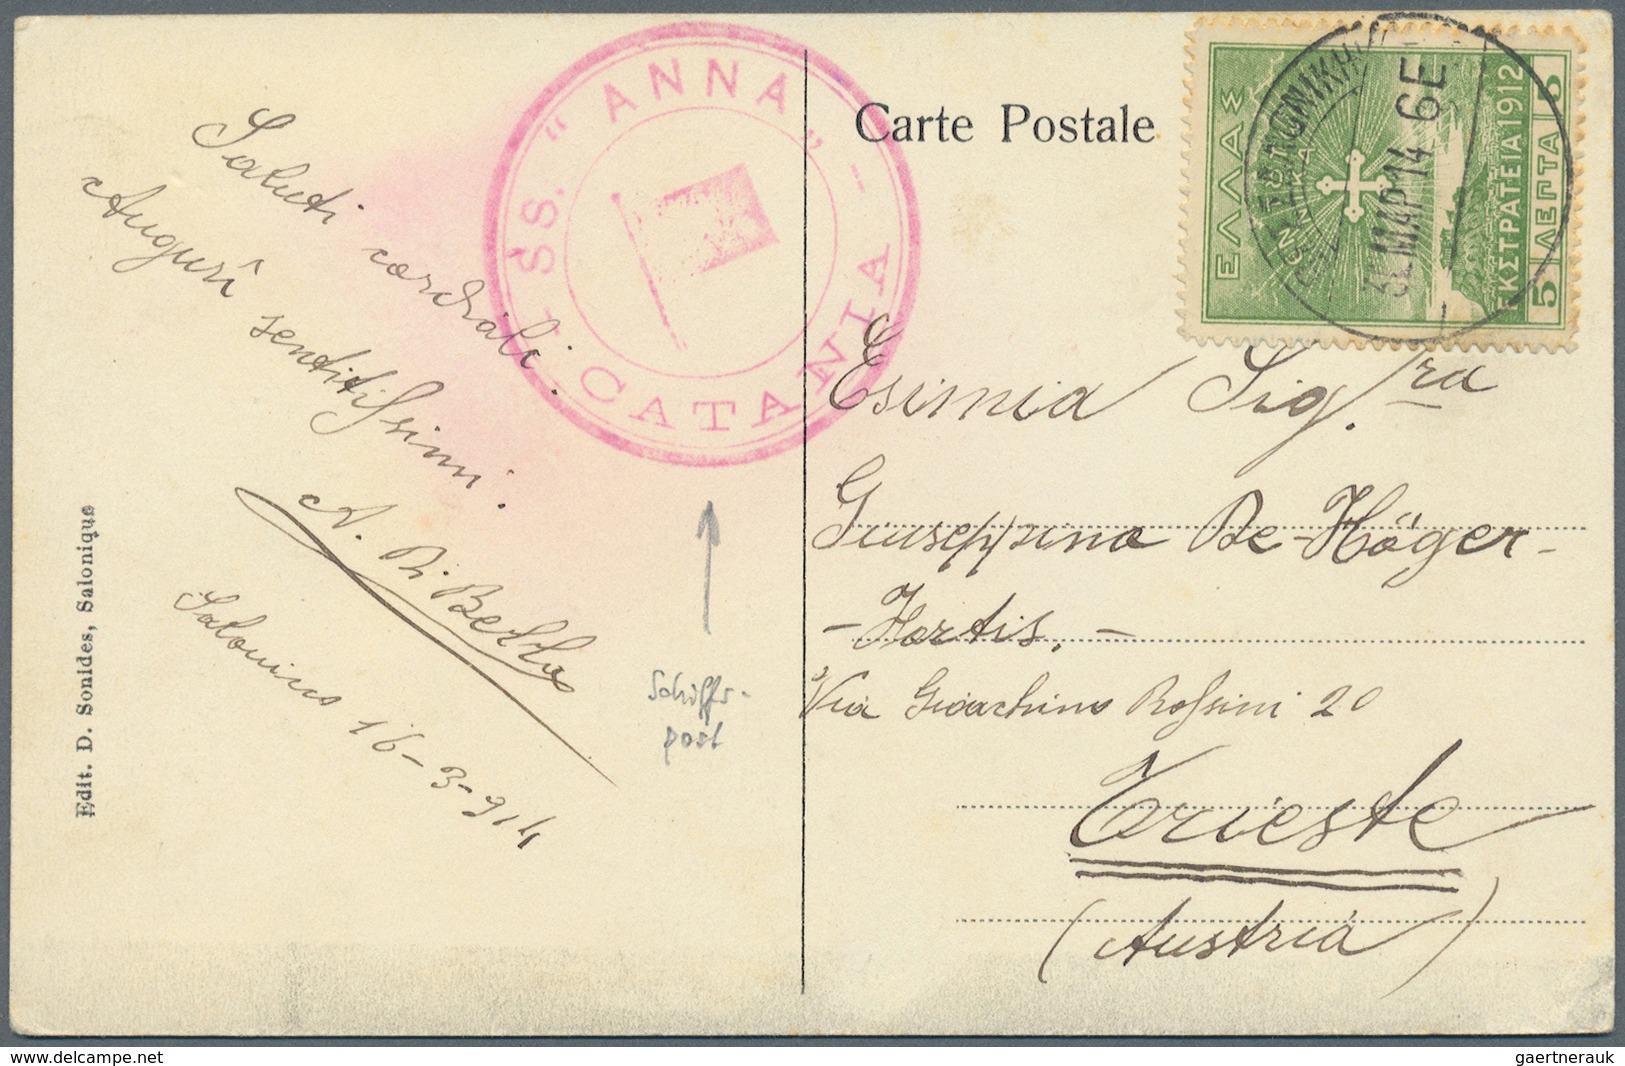 Saluti cordiali.
Augurî sentitissimi.
Salonicco 16-3-914
Edit. D. Sonides, Salonique
SS. "ANNA"
CATANIA
Schiffs-
post
Carte Postale
ΕΛΛΑΣ
ΕΚΣΤΡΑΤΕΙΑ 1912
5 ΛΕΠΤΑ 5
ΜΑΡ 14 6Ε
Esimia Sig.ra
Giuseppina De-Höger-
-Hortis.-
Via Gioachino Rossini 20
Trieste
(Austria)
gaertnerauk @ www.delcampe.net